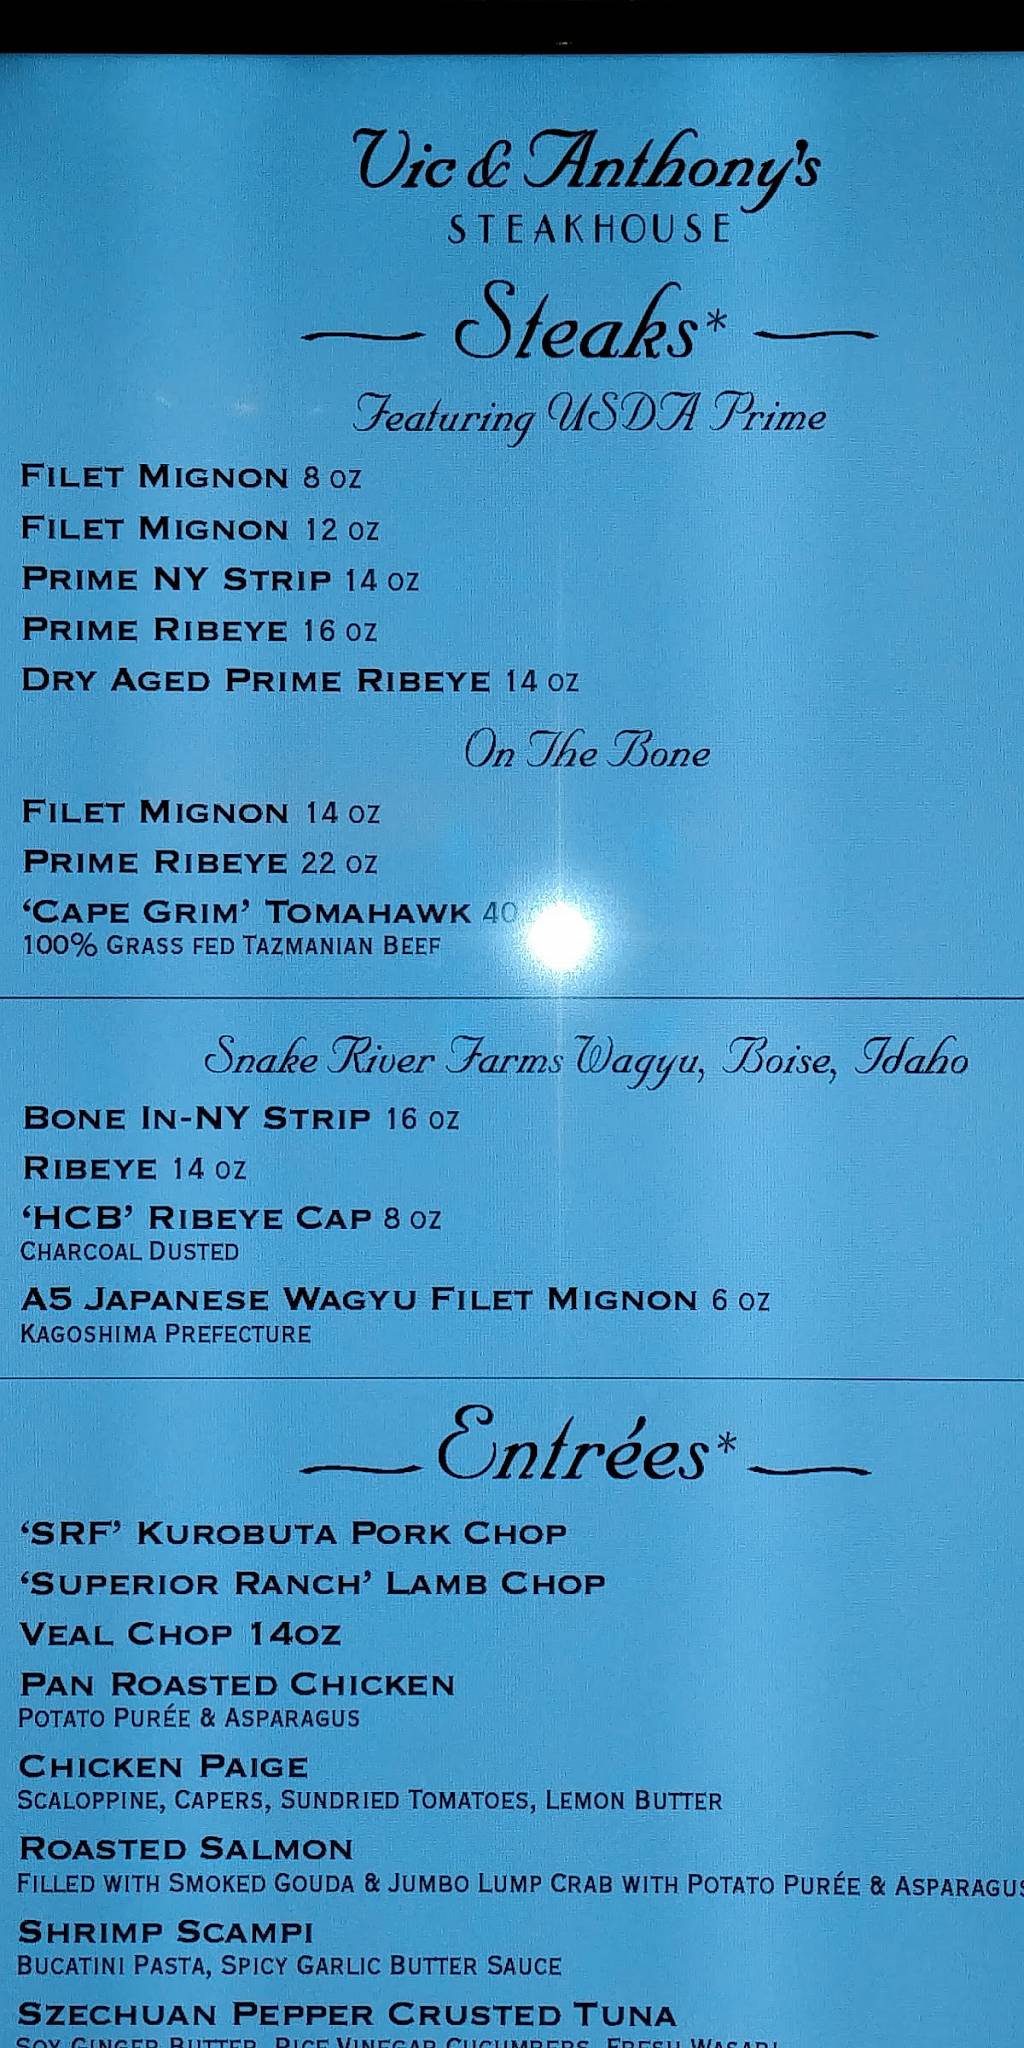 Vic & Anthony's
STEAKHOUSE
Steaks*
Featuring USDA Prime
FILET MIGNON 8 OZ
FILET MIGNON 12 OZ
PRIME NY STRIP 14 OZ
PRIME RIBEYE 16 OZ
DRY AGED PRIME RIBEYE 14 OZ
On The Bone
FILET MIGNON 14 OZ
PRIME RIBEYE 22 OZ
‘CAPE GRIM’ TOMAHAWK 40
100% GRASS FED TAZMANIAN BEEF
Snake River Farms Wagyu, Boise, Idaho
BONE IN-NY STRIP 16 OZ
RIBEYE 14 OZ
‘HCB’ RIBEYE CAP 8 OZ
CHARCOAL DUSTED
A5 JAPANESE WAGYU FILET MIGNON 6 OZ
KAGOSHIMA PREFECTURE
Entrées*
‘SRF’ KUROBUTA PORK CHOP
‘SUPERIOR RANCH’ LAMB CHOP
VEAL CHOP 14OZ
PAN ROASTED CHICKEN
POTATO PURÉE & ASPARAGUS
CHICKEN PAIGE
SCALOPPINE, CAPERS, SUNDRIED TOMATOES, LEMON BUTTER
ROASTED SALMON
FILLED WITH SMOKED GOUDA & JUMBO LUMP CRAB WITH POTATO PURÉE & ASPARAGUS
SHRIMP SCAMPI
BUCATINI PASTA, SPICY GARLIC BUTTER SAUCE
SZECHUAN PEPPER CRUSTED TUNA
SOY GINGER BUTTER, RICE VINEGAR CUCUMBERS, FRESH WASABI